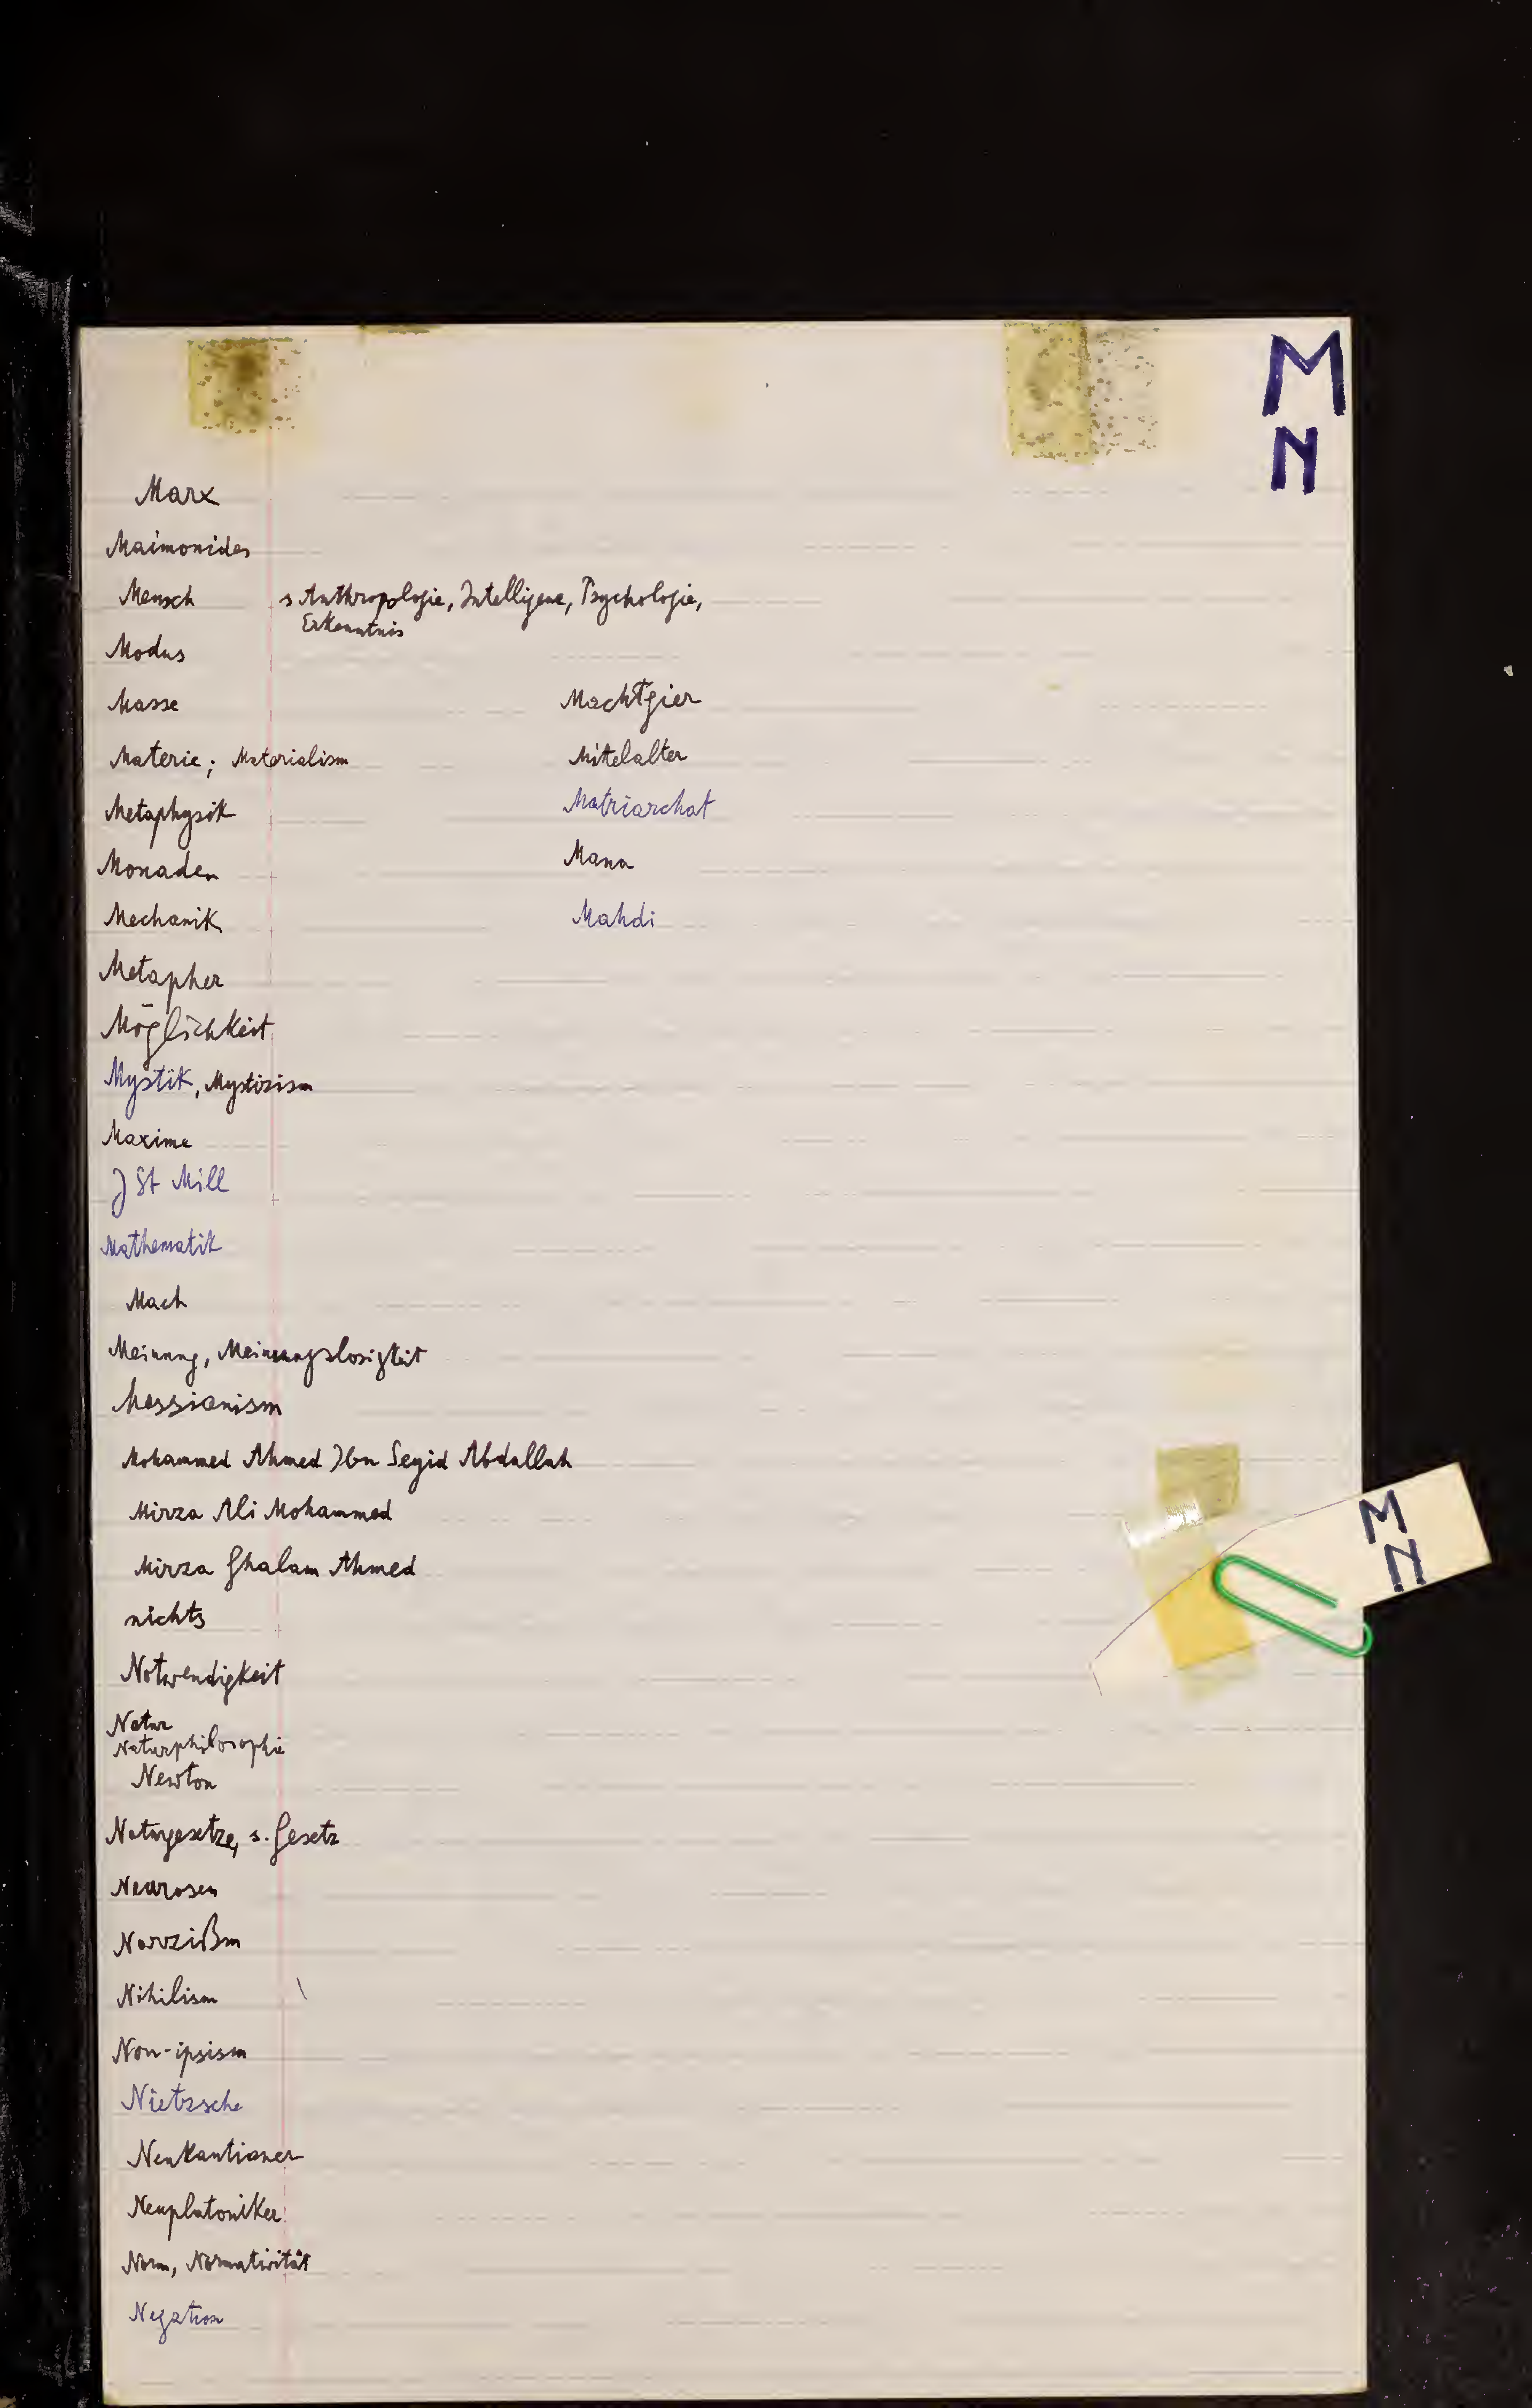 M
N
Marx
Maimonides
Mensch s Anthropologie, Intelligenz, Psychologie,
Erkenntnis
Modus
Masse Machtgier
Materie; Materialism Mittelalter
Metaphysik Matriarchat
Monaden Mana
Mechanik Mahdi
Metapher
Möglichkeit
Mystik, Mystizism
Maxime
J St Mill
Mathematik
Mach
Meinung, Meinungslosigkeit
Messianism
Mohammed Ahmed Ibn Seyid Abdallah
Mirza Ali Mohammed
Mirza Ghalam Ahmed
M
N
nichts
Notwendigkeit
Natur
Naturphilosophie
Newton
Naturgesetze, s. Gesetz
Neurosen
Narzißm
Nihilism
Non-ipsism
Nietzsche
Neukantianer
Neuplatoniker
Norm, Normativität
Negation